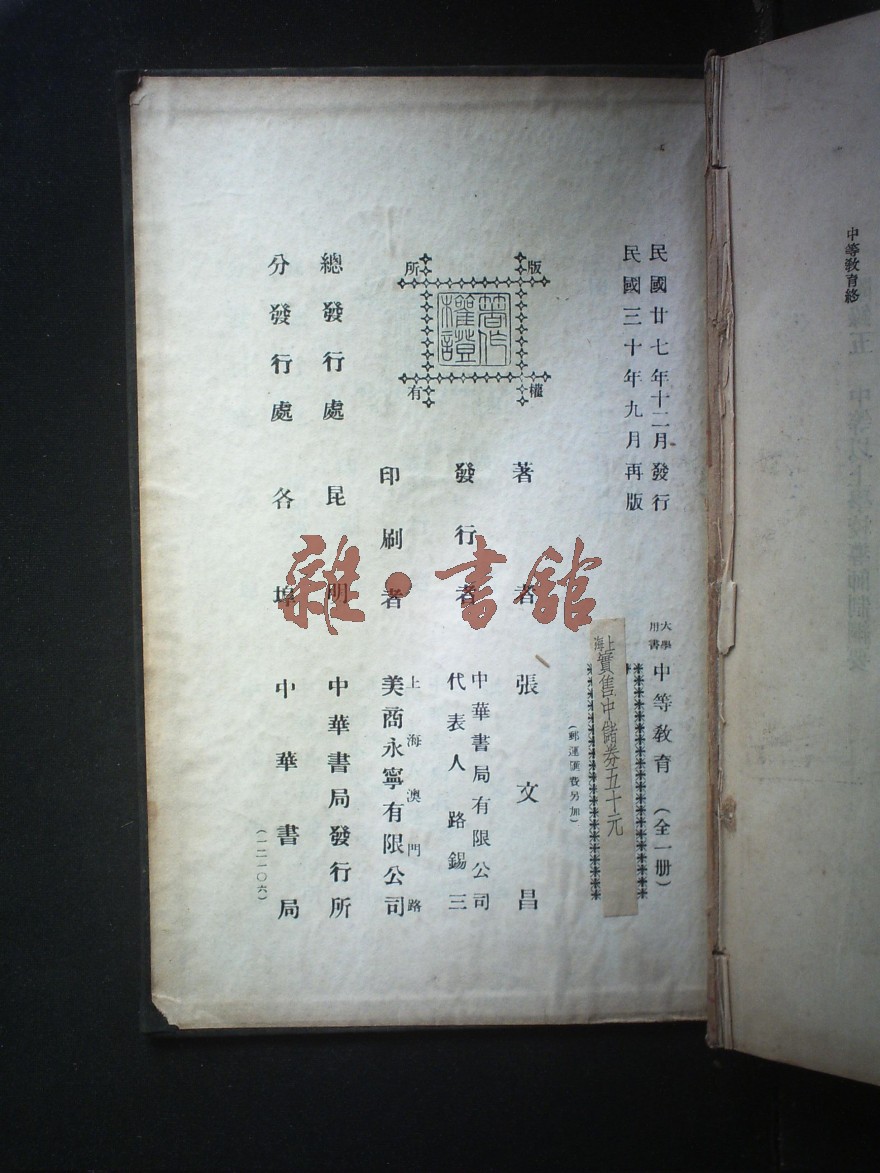 中等教育終
民國廿七年十二月發行
民國三十年九月再版
大學用書
中等教育（全一册）
上海實售中儲券五十元
（郵運匯費另加）
版權所有
著作權證
著者 張文昌
發行者 中華書局有限公司
代表人 路錫三
印刷者 上海澳門路
美商永寧有限公司
總發行處 昆明 中華書局發行所
分發行處 各埠 中華書局
（一二一〇六）
雜·書館